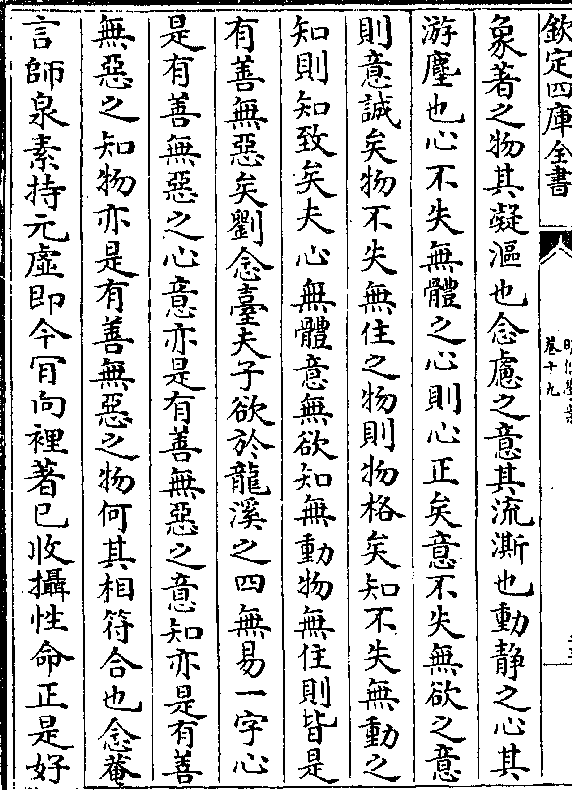 欽定四庫全書
卷十九
象著之物其凝漚也念慮之意其流澌也動静之心其
游塵也心不失無體之心則心正矣意不失無欲之意
則意誠矣物不失無住之物則物格矣知不失無動之
知則知致矣夫心無體意無欲知無動物無住則皆是
有善無惡矣劉念臺夫子欲於龍溪之四無易一字心
是有善無惡之心意亦是有善無惡之意知亦是有善
無惡之知物亦是有善無惡之物何其相符合也念菴
言師泉素持元虛即今肎向裡著已收攝性命正是好